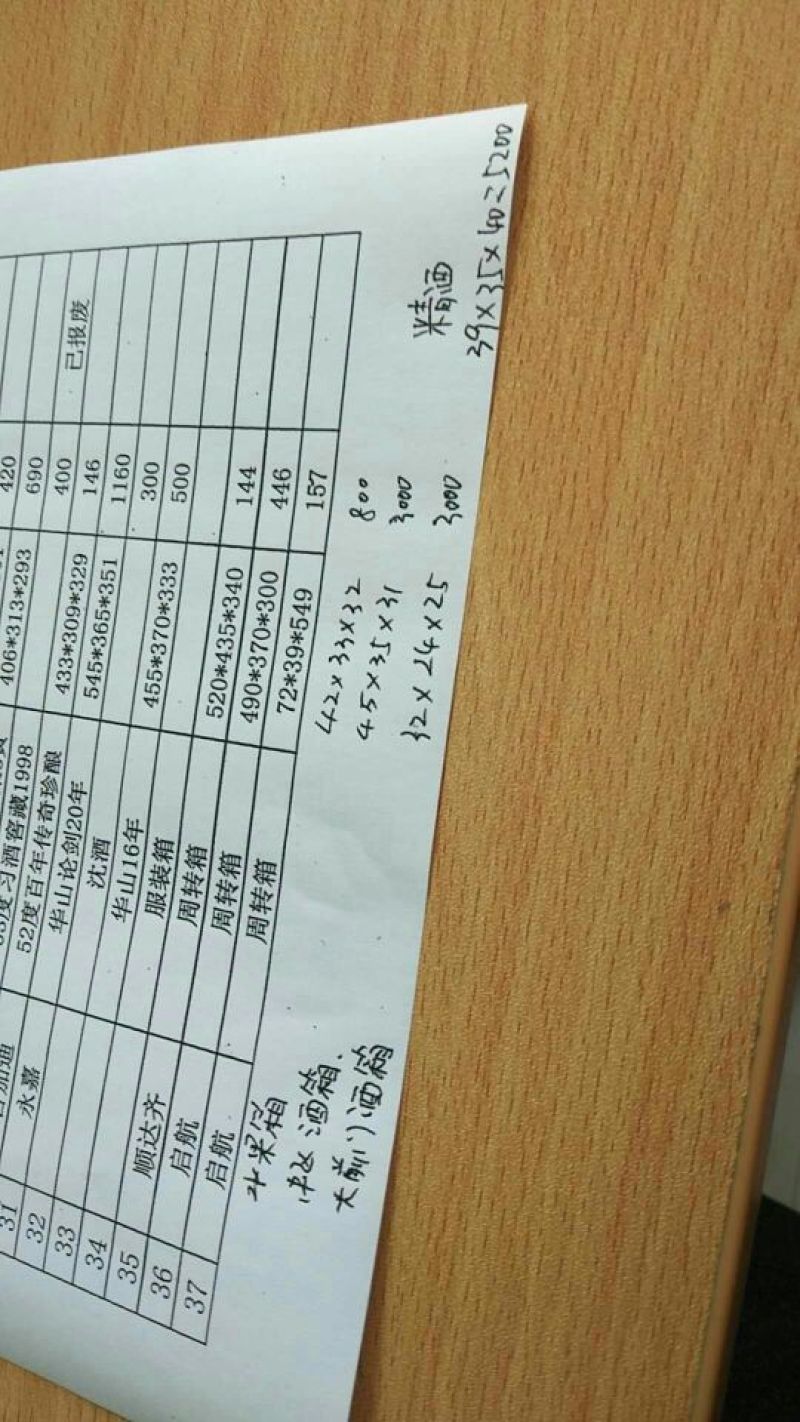 406*313*293 690
度习酒窖藏1998 400 已报废
52度百年传奇珍酿 433*309*329 146
31 永嘉 华山论剑20年 545*365*351 1160
32 沈酒 300
33 华山16年 455*370*333 500
34 服装箱
35 顺达齐 周转箱 520*435*340 144
36 启航 周转箱 490*370*300 446
37 启航 周转箱 72*39*549 157
水果箱 42×33×32 800
酒箱 45×35×31 3000 精酒
大前门酒箱 32×24×25 3000 39×35×40=5200